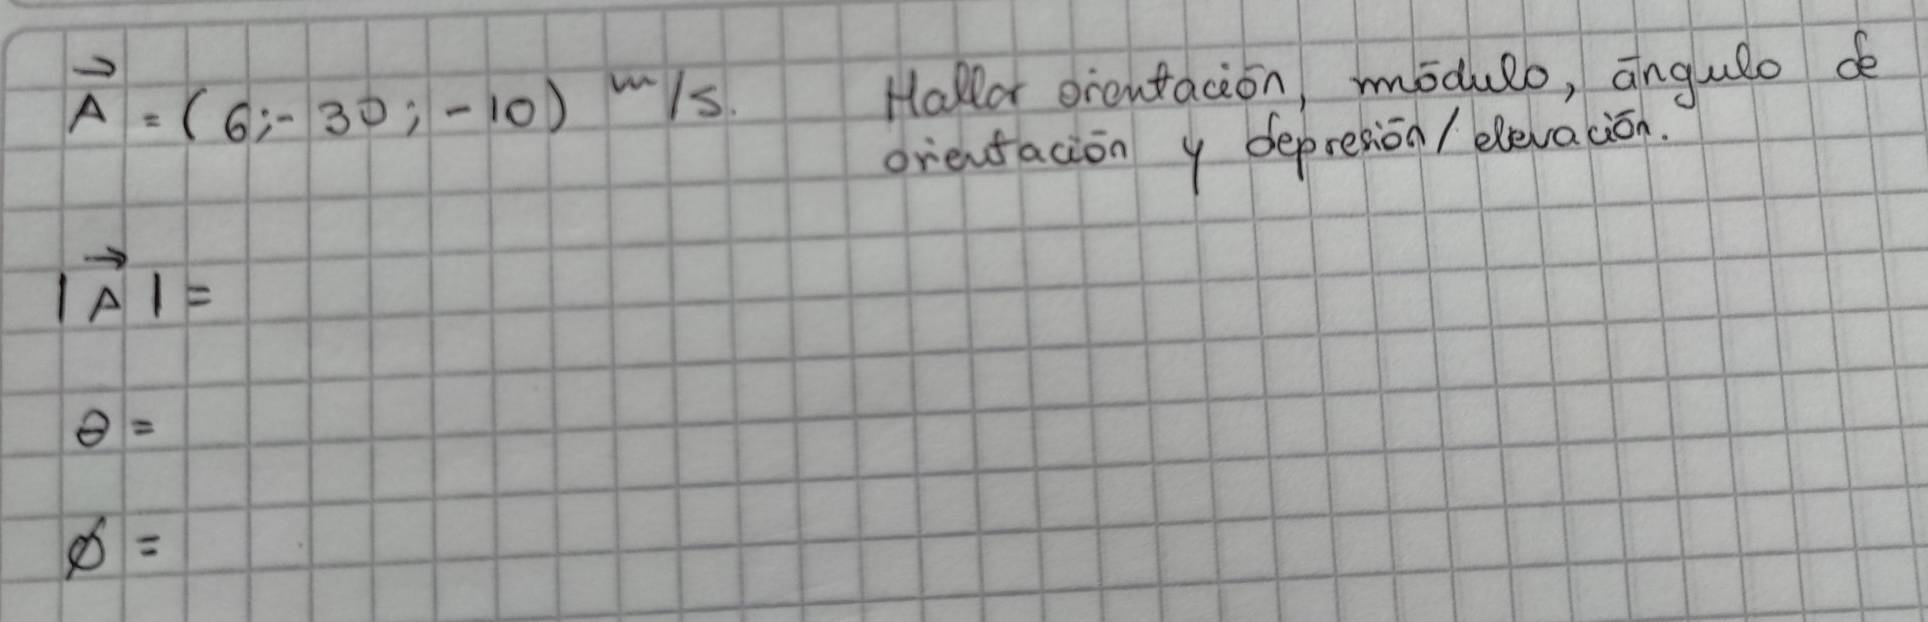 A⃗ = (6;-30;-10) m/s.
Hallar orientación, módulo, ángulo de
orientación y depresión/elevación.
|A⃗| =
θ =
ϕ =